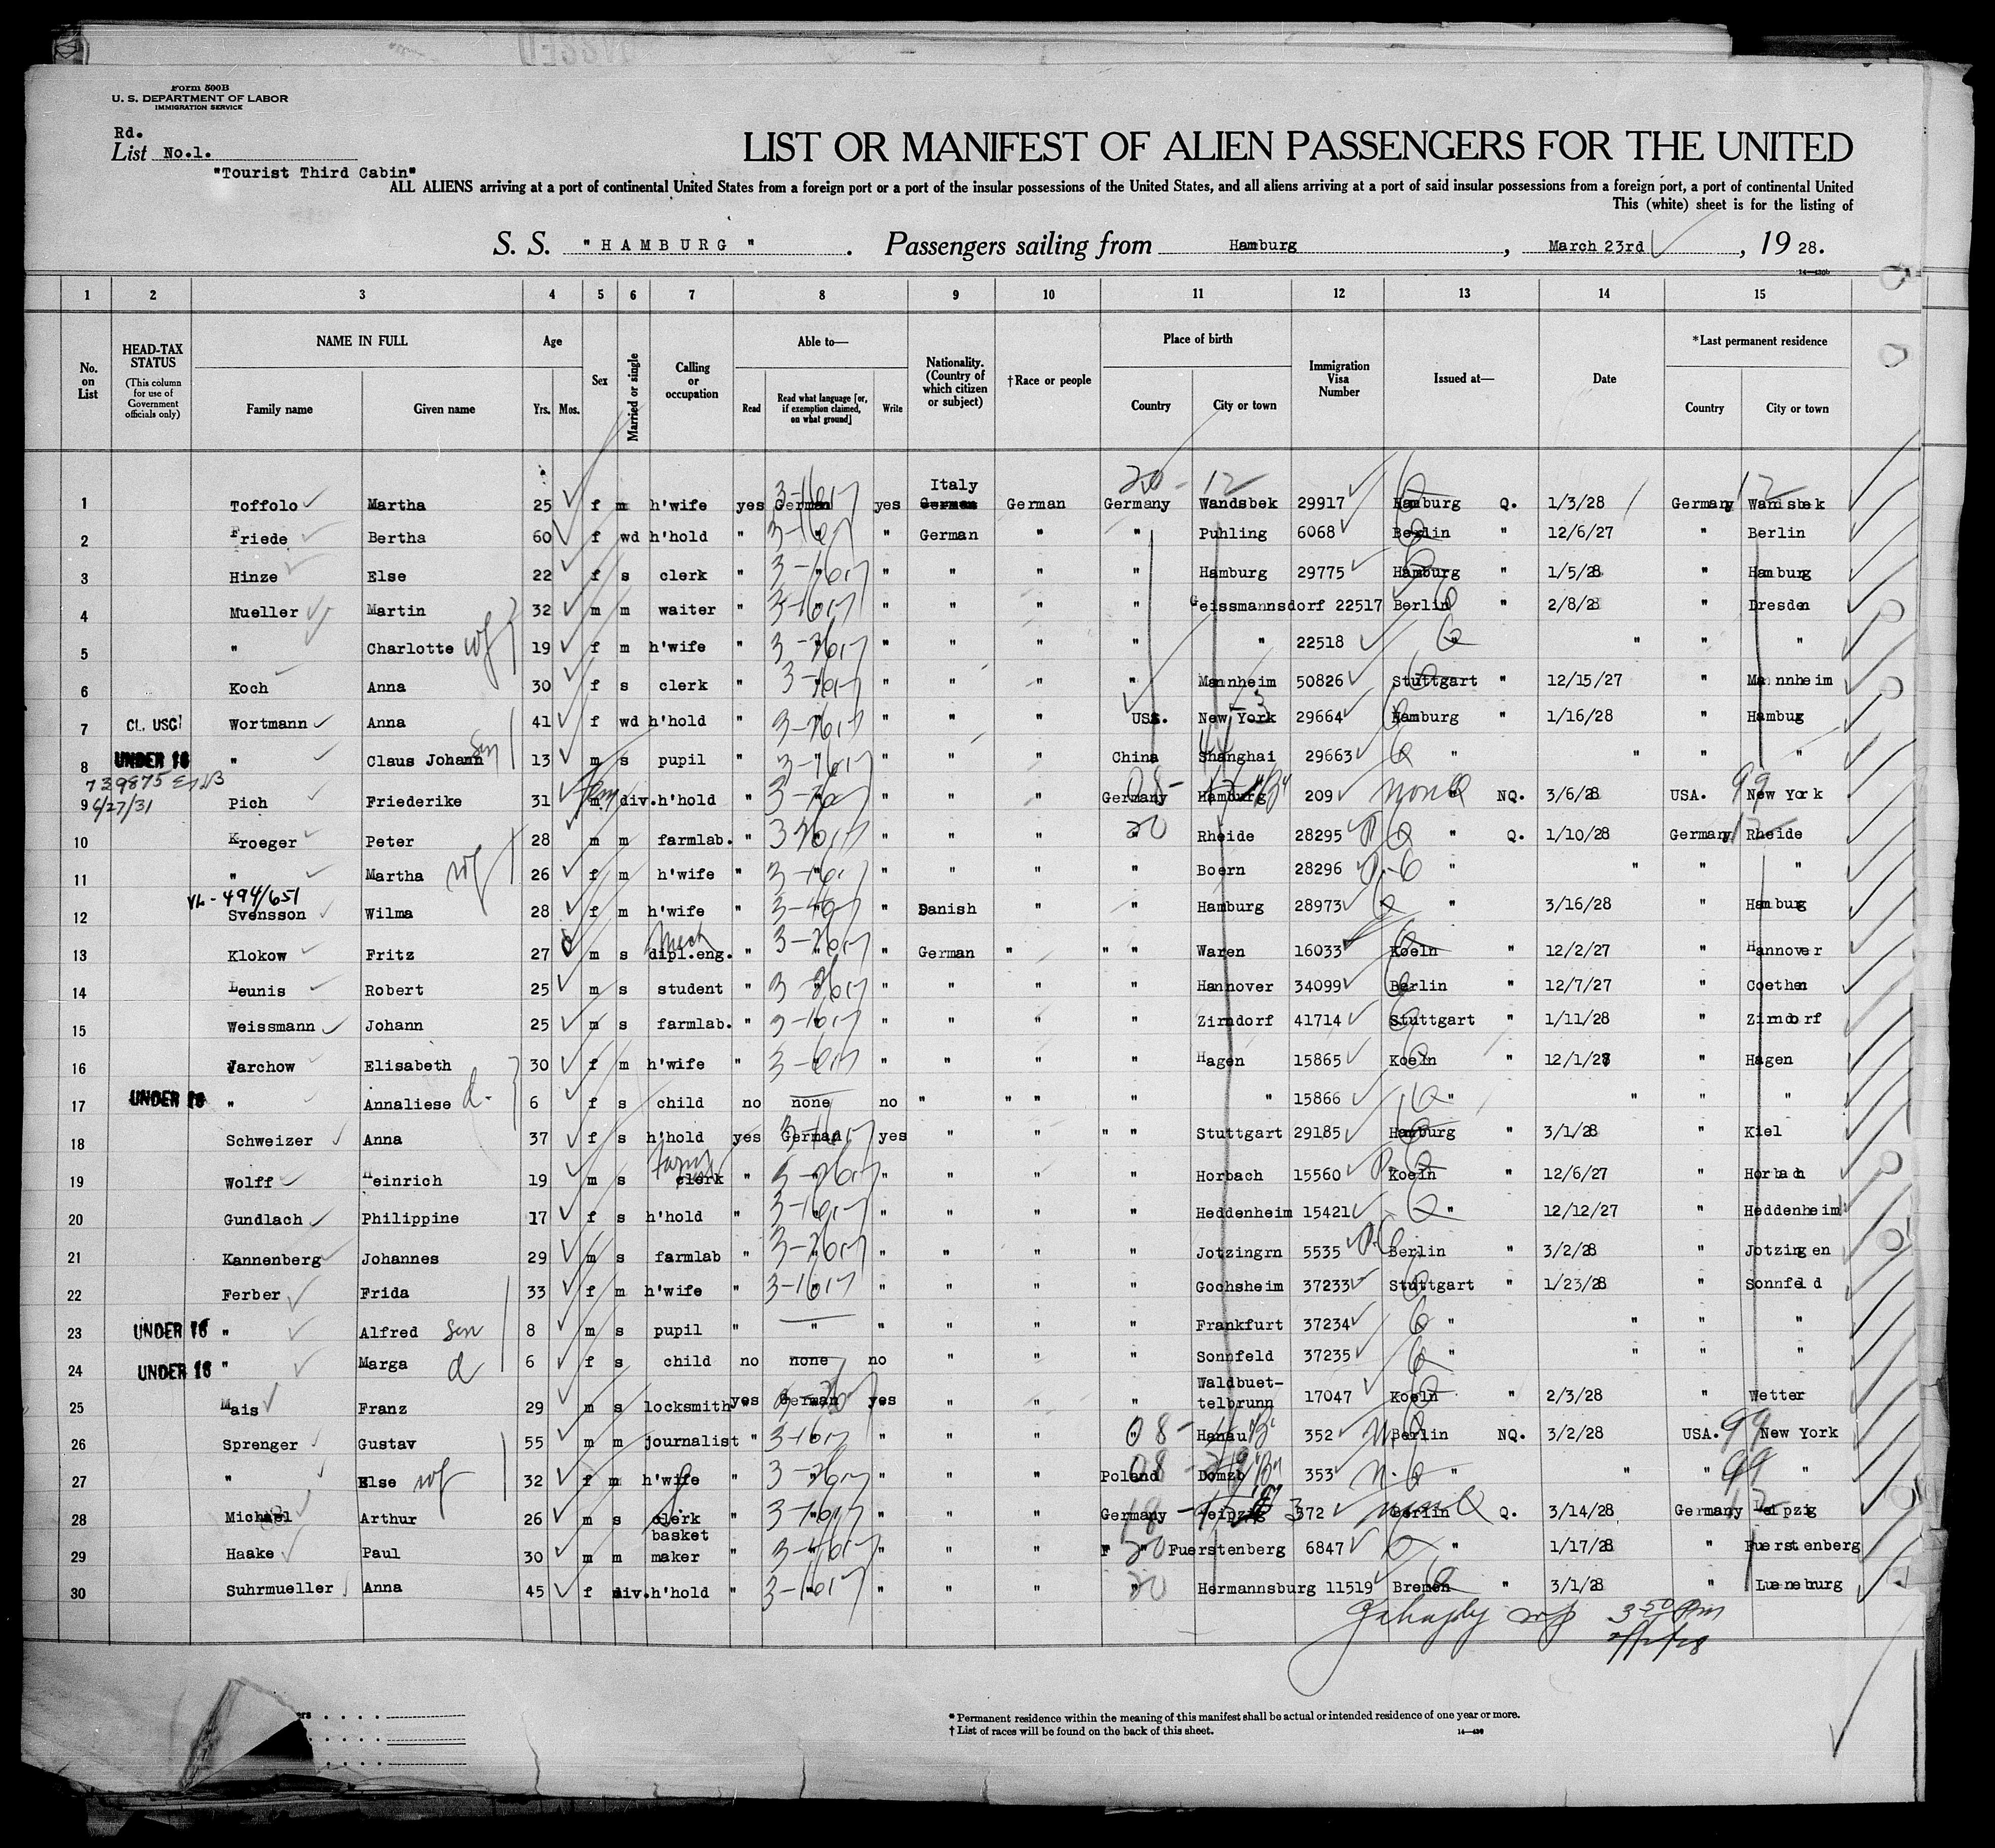 Form 500B
U. S. DEPARTMENT OF LABOR
IMMIGRATION SERVICE
Rd.
List No.1.
"Tourist Third Cabin"
LIST OR MANIFEST OF ALIEN PASSENGERS FOR THE UNITED
ALL ALIENS arriving at a port of continental United States from a foreign port or a port of the insular possessions of the United States, and all aliens arriving at a port of said insular possessions from a foreign port, a port of continental United
This (white) sheet is for the listing of
S. S. "HAMBURG". Passengers sailing from Hamburg, March 23rd, 1928.
1 2 3 4 5 6 7 8 9 10 11 12 13 14 15
No. on List
HEAD-TAX STATUS (This column for use of Government officials only)
NAME IN FULL Family name Given name
Age Yrs. Mos.
Sex
Married or single
Calling or occupation
Able to— Read Read what language [or, if exemption claimed, on what ground] Write
Nationality. (Country of which citizen or subject)
†Race or people
Place of birth Country City or town
Immigration Visa Number
Issued at—
Date
*Last permanent residence Country City or town
Italy
1 Toffolo Martha 25 f m h'wife yes German yes German German Germany Wandsbek 29917 Hamburg Q. 1/3/28 Germany Wandsbek
2 Friede Bertha 60 f wd h'hold " " " German " " Puhling 6068 Berlin " 12/6/27 " Berlin
3 Hinze Else 22 f s clerk " " " " " " Hamburg 29775 Hamburg " 1/5/28 " Hamburg
4 Mueller Martin 32 m m waiter " " " " " " Geissmannsdorf 22517 Berlin " 2/8/28 " Dresden
5 " Charlotte wf 19 f m h'wife " " " " " " " 22518 " " " "
6 Koch Anna 30 f s clerk " " " " " " Mannheim 50826 Stuttgart " 12/15/27 " Mannheim
7 CL. USC Wortmann Anna 41 f wd h'hold " " " " " USA. New York 29664 Hamburg " 1/16/28 " Hambug
8 UNDER 16 " Claus Johann Son 13 m s pupil " " " " " China Shanghai 29663 " " " "
739875
9 6/27/31 Pich Friederike 31 m div. h'hold " " " " " Germany Hamburg 209 " NQ. 3/6/28 USA. New York
10 Kroeger Peter 28 m m farmlab. " " " " " " Rheide 28295 " Q. 1/10/28 Germany Rheide
11 " Martha wf 26 f m h'wife " " " " " " Boern 28296 " " " "
VL-494/651
12 Svensson Wilma 28 f m h'wife " " " Danish " " Hamburg 28973 " 3/16/28 " Hamburg
Mech
13 Klokow Fritz 27 m s dipl.eng. " " " German " " " Waren 16033 Koeln " 12/2/27 " Hannover
14 Leunis Robert 25 m s student " " " " " " Hannover 34099 Berlin " 12/7/27 " Coethen
15 Weissmann Johann 25 m s farmlab. " " " " " " Zirndorf 41714 Stuttgart " 1/11/28 " Zirndorf
16 Jarchow Elisabeth 30 f m h'wife " " " " " " Hagen 15865 Koeln " 12/1/28 " Hagen
17 UNDER 16 " Annaliese d. 6 f s child no none no " " " " " 15866 " " " "
18 Schweizer Anna 37 f s h'hold yes German yes " " " " Stuttgart 29185 Hamburg " 3/1/28 " Kiel
farm
19 Wolff Heinrich 19 m s clerk " " " " " " Horbach 15560 Koeln " 12/6/27 " Horbach
20 Gundlach Philippine 17 f s h'hold " " " " " " Heddenheim 15421 " 12/12/27 " Heddenheim
21 Kannenberg Johannes 29 m s farmlab " " " " " " Jotzingrn 5535 Berlin " 3/2/28 " Jotzingen
22 Ferber Frida 33 f m h'wife " " " " " Gochsheim 37233 Stuttgart " 1/23/28 " Sonnfeld
23 UNDER 16 " Alfred Son 8 m s pupil " " " " " " Frankfurt 37234 " " " "
24 UNDER 16 " Marga d 6 f s child no none no " " " Sonnfeld 37235 " " " "
25 Mais Franz 29 m s locksmith yes German yes " " " Waldbuet-telbrunn 17047 Koeln " 2/3/28 " Wetter
26 Sprenger Gustav 55 m m journalist " " " " " " Hanau 352 Berlin NQ. 3/2/28 USA. New York
27 " Else wf 32 f m h'wife " " " " " Poland Domzb 353 " " " "
28 Michael Arthur 26 m s clerk " " " " " Germany Leipzig 372 Berlin Q. 3/14/28 Germany Leipzig
29 Haake Paul 30 m m basket maker " " " " " " Fuerstenberg 6847 " 1/17/28 " Fuerstenberg
30 Suhrmueller Anna 45 f div. h'hold " " " " " " Hermannsburg 11519 Bremen " 3/1/28 " Lueneburg
3 50 Pm
* Permanent residence within the meaning of this manifest shall be actual or intended residence of one year or more.
† List of races will be found on the back of this sheet.